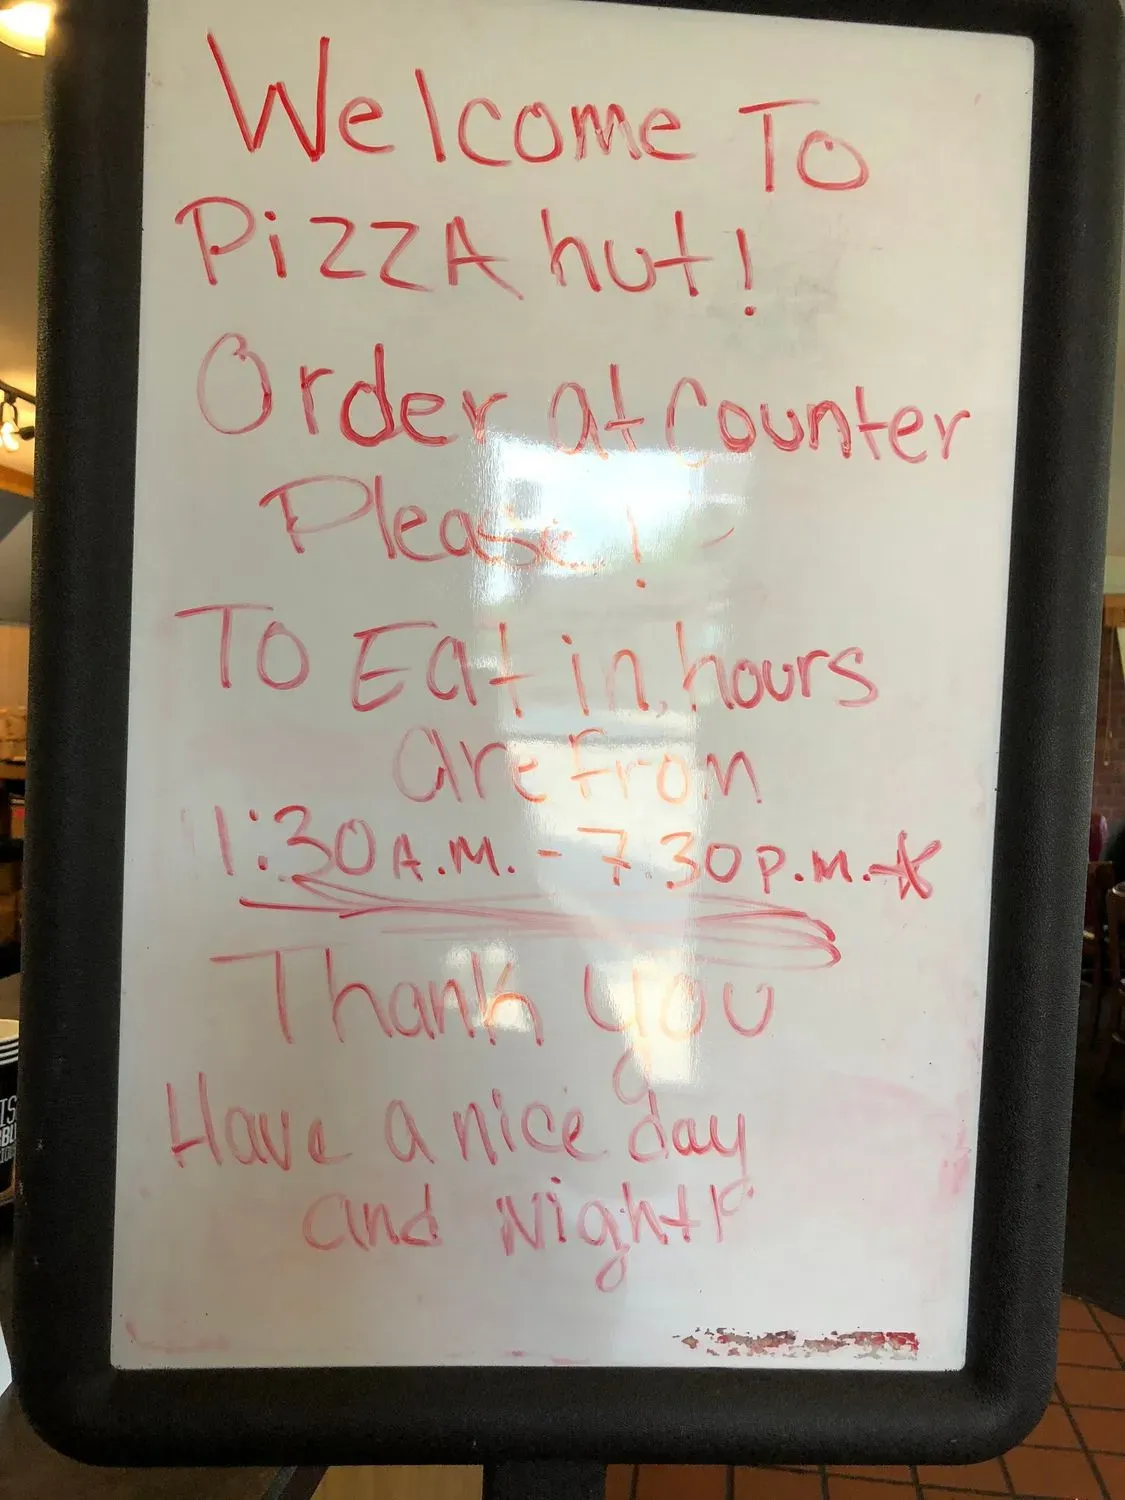 Welcome To
PizzA hut!
Order at Counter
Please!
To Eat in, hours
are from
11:30 A.M. - 7:30 P.M.
Thank you
Have a nice day
and Night!